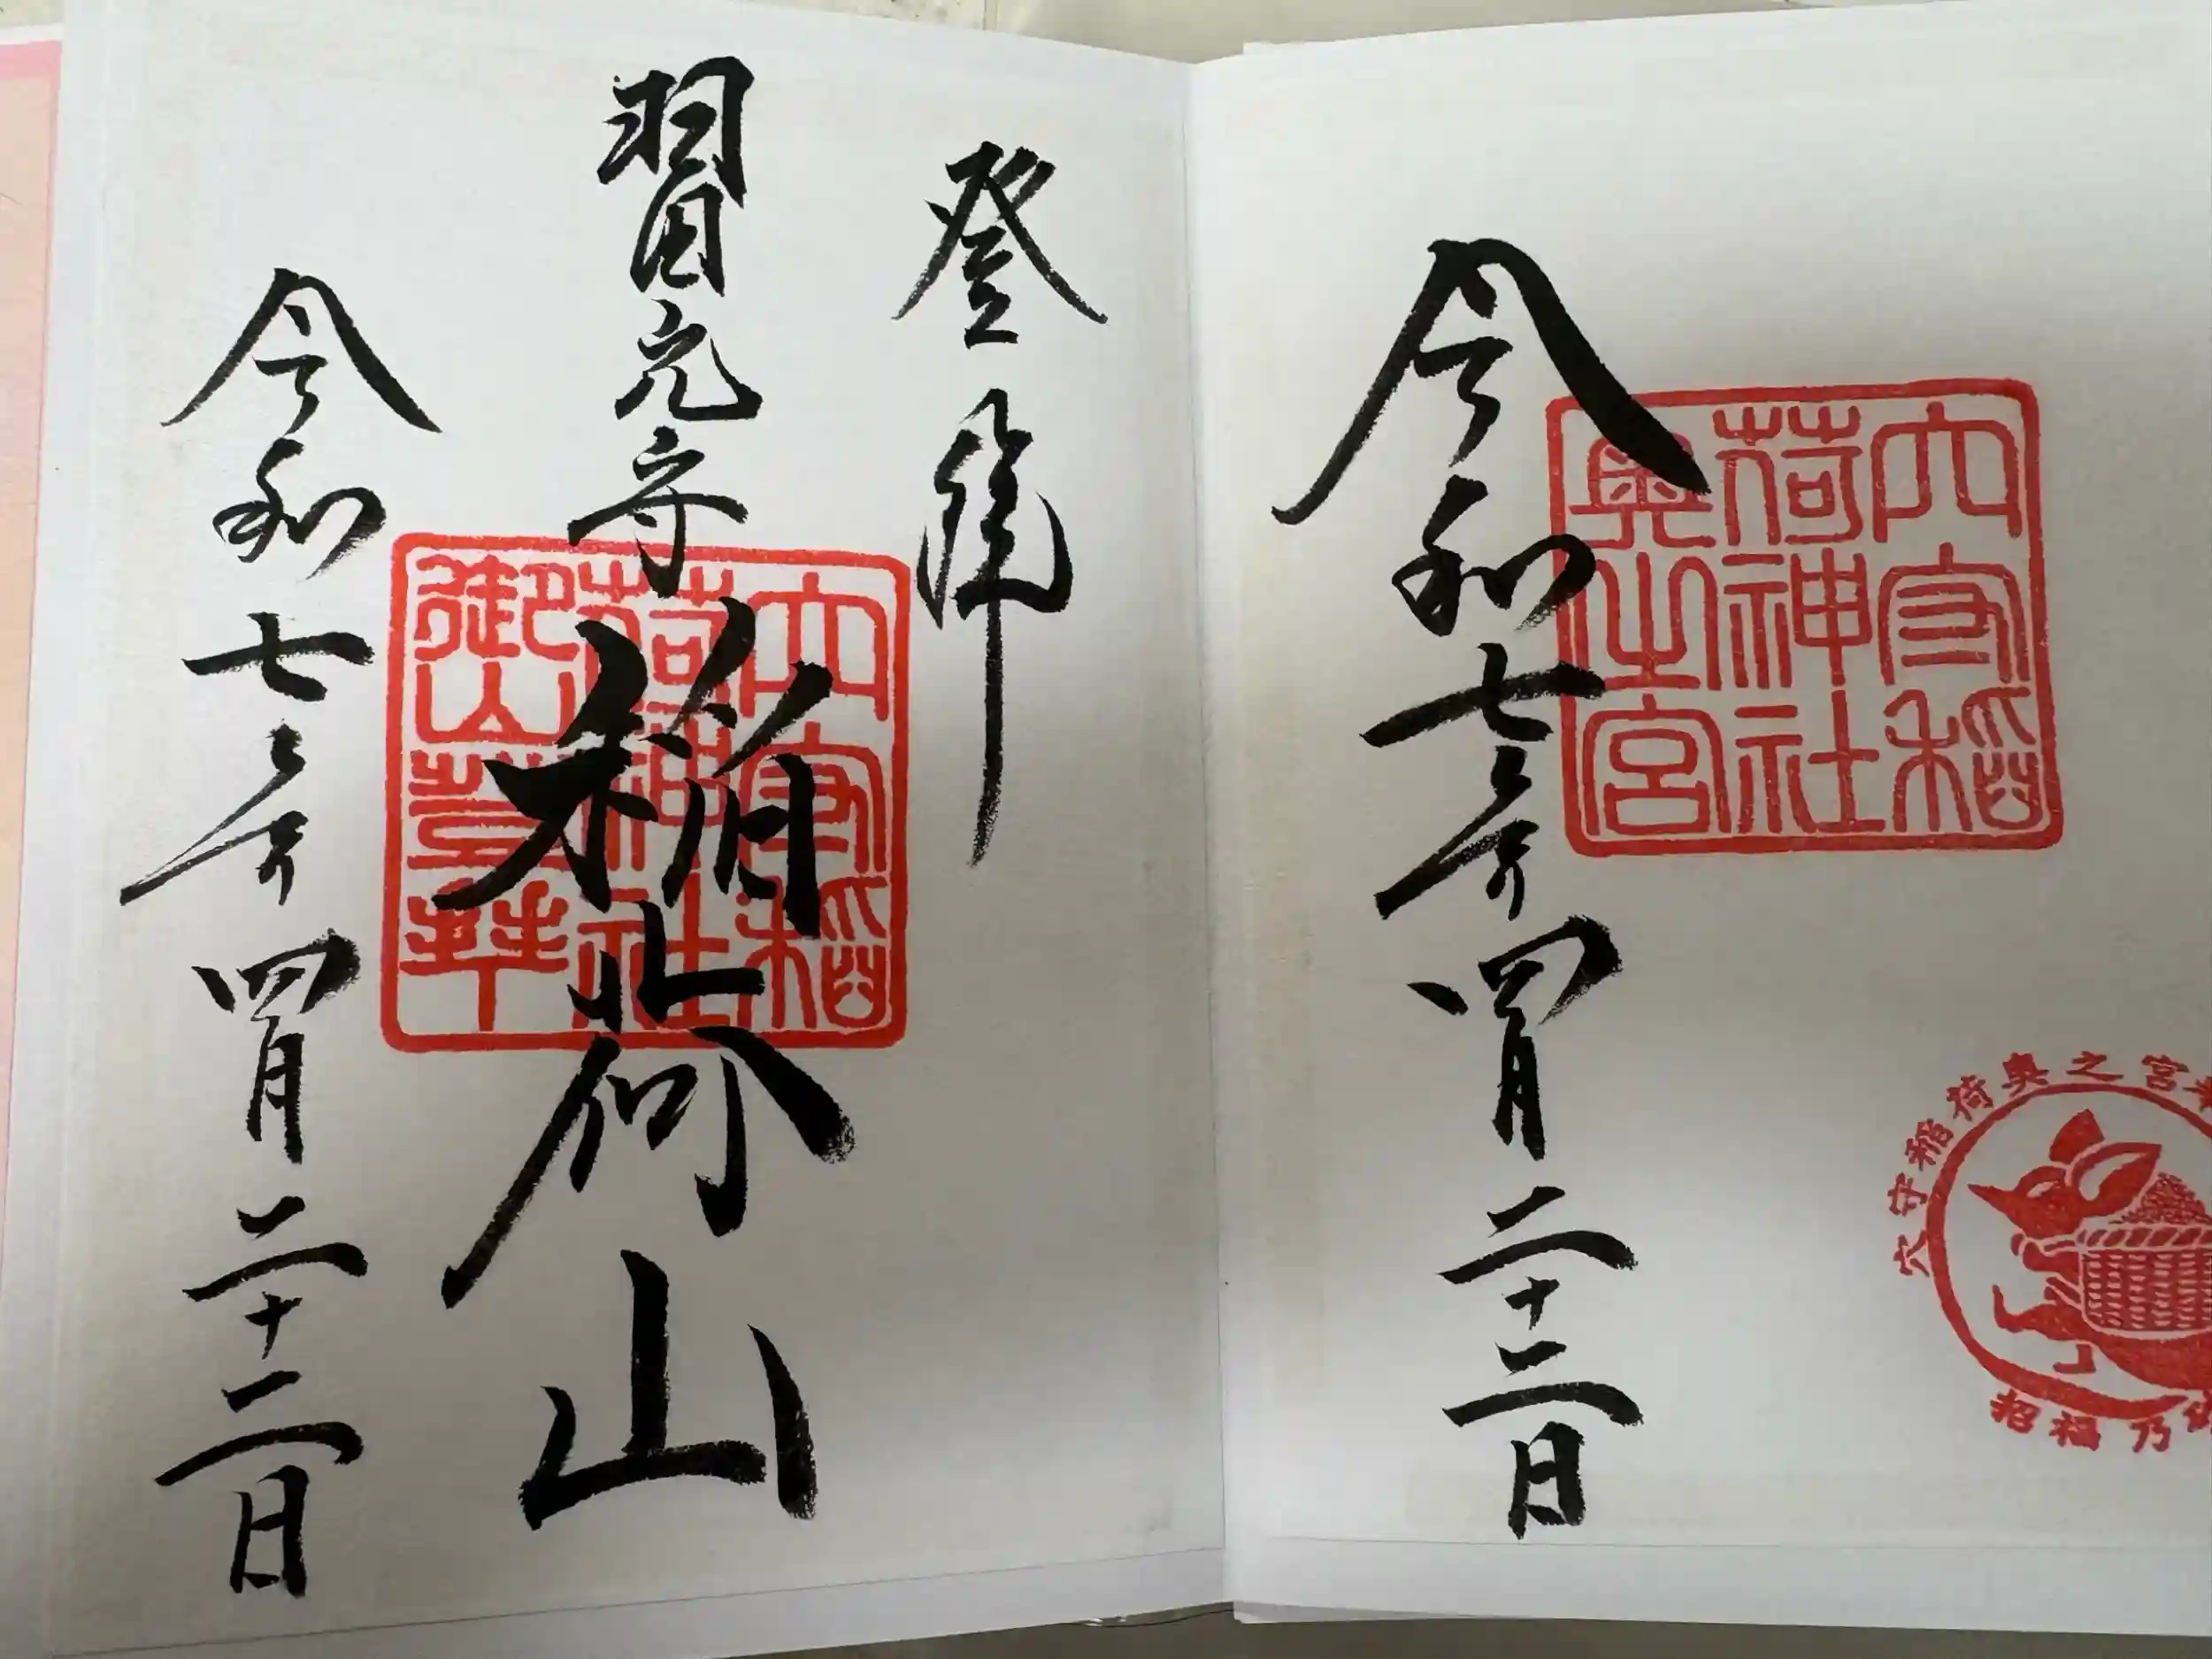 穴守稲
荷神社
奥之宮
令和七年四月二十二日
穴守稲荷奥之宮
招福乃
登拝
羽田穴守
稲荷山
穴守稲
荷神社
御山登拝
令和七年四月二十二日